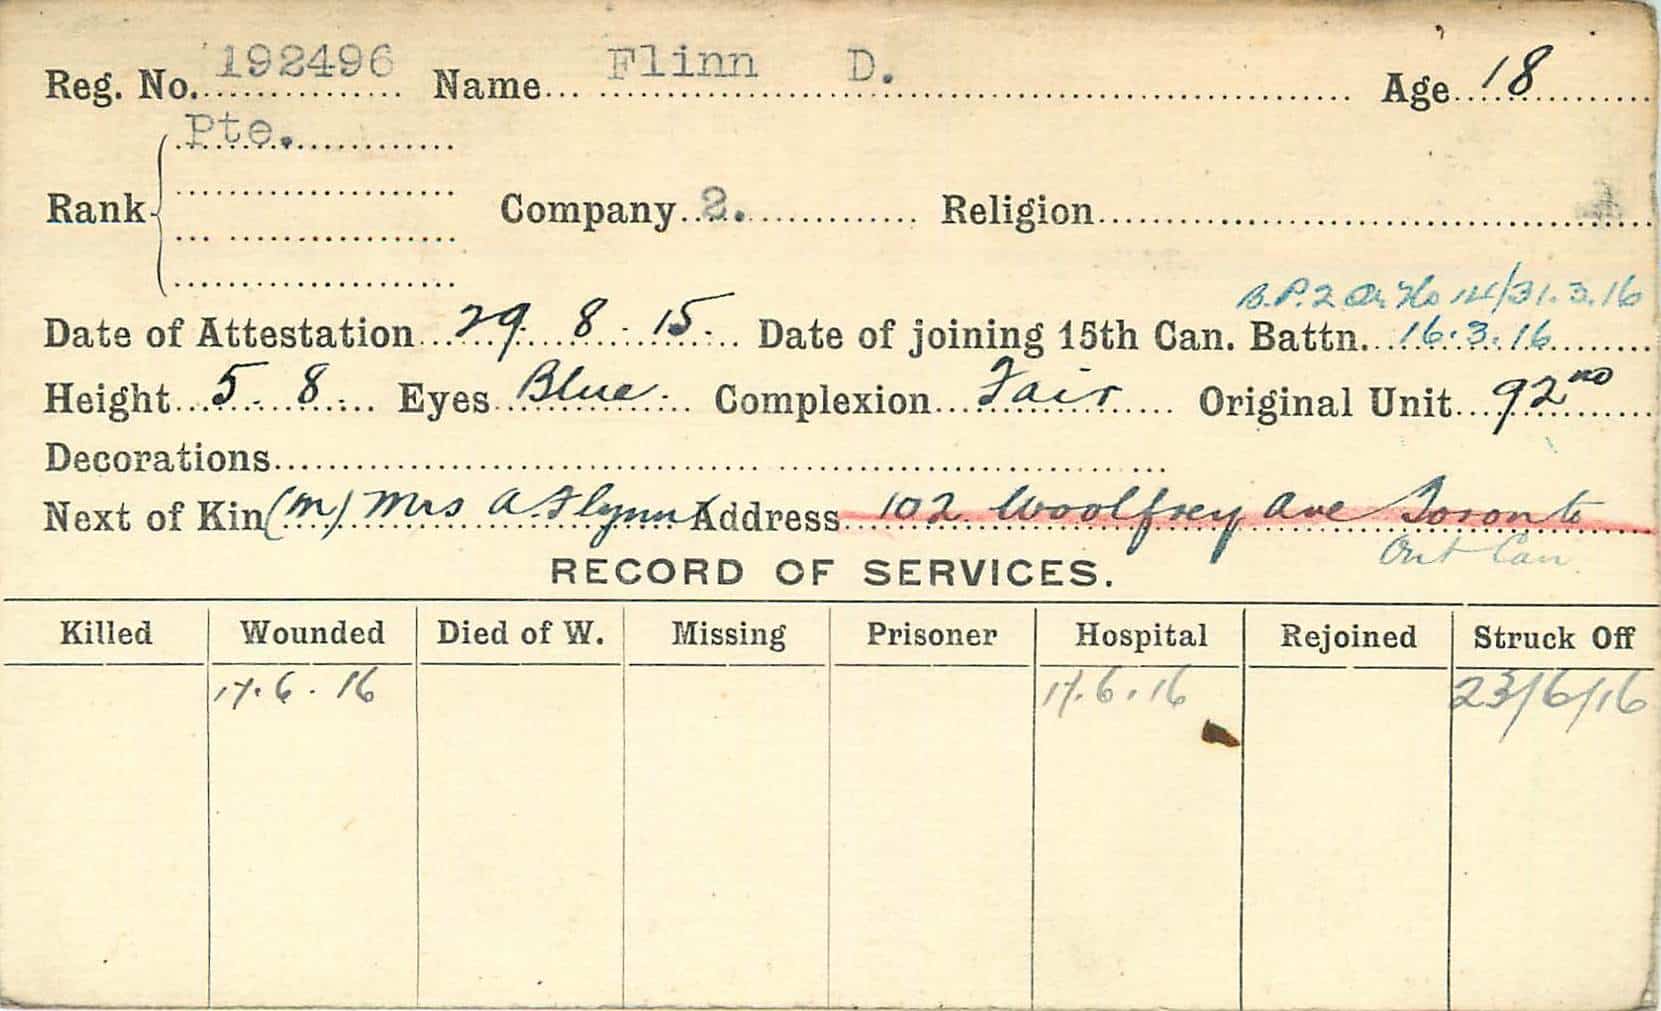 Reg. No. 192496 Name Flinn D. Age 18
Pte.
Rank Company 2. Religion
B.P.2 Or No 14/31.3.16
Date of Attestation 29. 8. 15. Date of joining 15th Can. Battn. 16.3.16
Height 5. 8. Eyes Blue. Complexion Fair Original Unit 92nd
Decorations
Next of Kin (m) Mrs A Flynn Address 102 Woolfrey Ave Toronto
Ont Can.
RECORD OF SERVICES.
Killed Wounded Died of W. Missing Prisoner Hospital Rejoined Struck Off
17.6.16 17.6.16 23/6/16